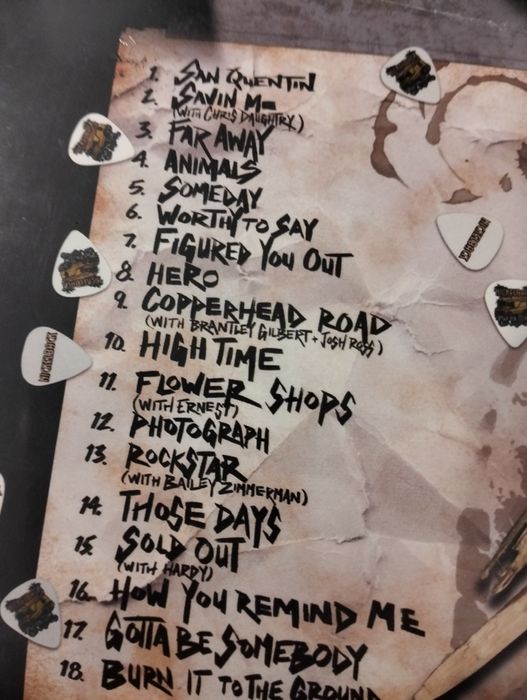 1. SAN QUENTIN
2. SAVIN ME
(WITH CHRIS DAUGHTRY)
3. FAR AWAY
4. ANIMALS
5. SOMEDAY
6. WORTHY TO SAY
7. FIGURED YOU OUT
8. HERO
9. COPPERHEAD ROAD
(WITH BRANTLEY GILBERT + JOSH ROSS)
10. HIGH TIME
11. FLOWER SHOPS
(WITH ERNEST)
12. PHOTOGRAPH
13. ROCKSTAR
(WITH BAILEY ZIMMERMAN)
14. THOSE DAYS
15. SOLD OUT
(WITH HARDY)
16. HOW YOU REMIND ME
17. GOTTA BE SOMEBODY
18. BURN IT TO THE GROUND
NICKELBACK
NICKELBACK